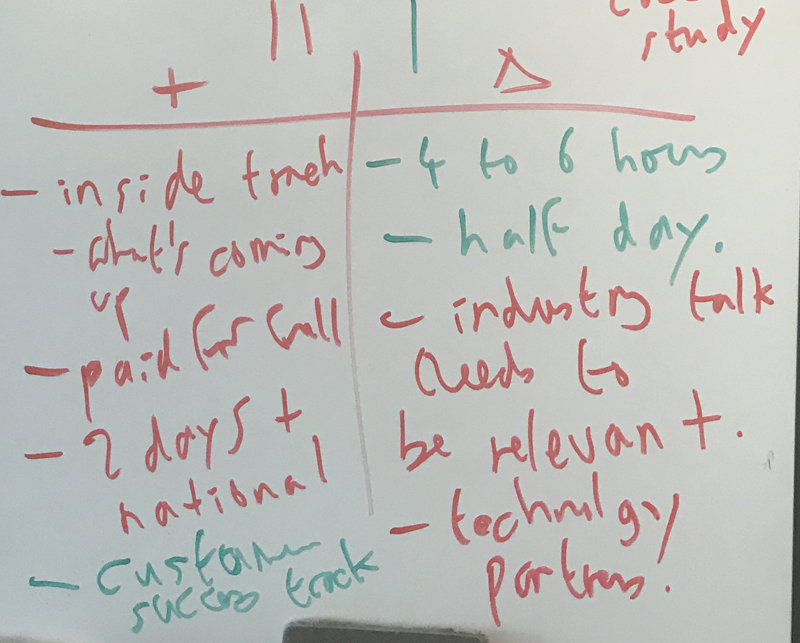 study
+ Δ
- inside track
- what's coming
up
- paid for
- 2 days +
national
- customer
success track
- 4 to 6 hours
- half day.
- industry talk
needs to
be relevant.
- technology
partners.